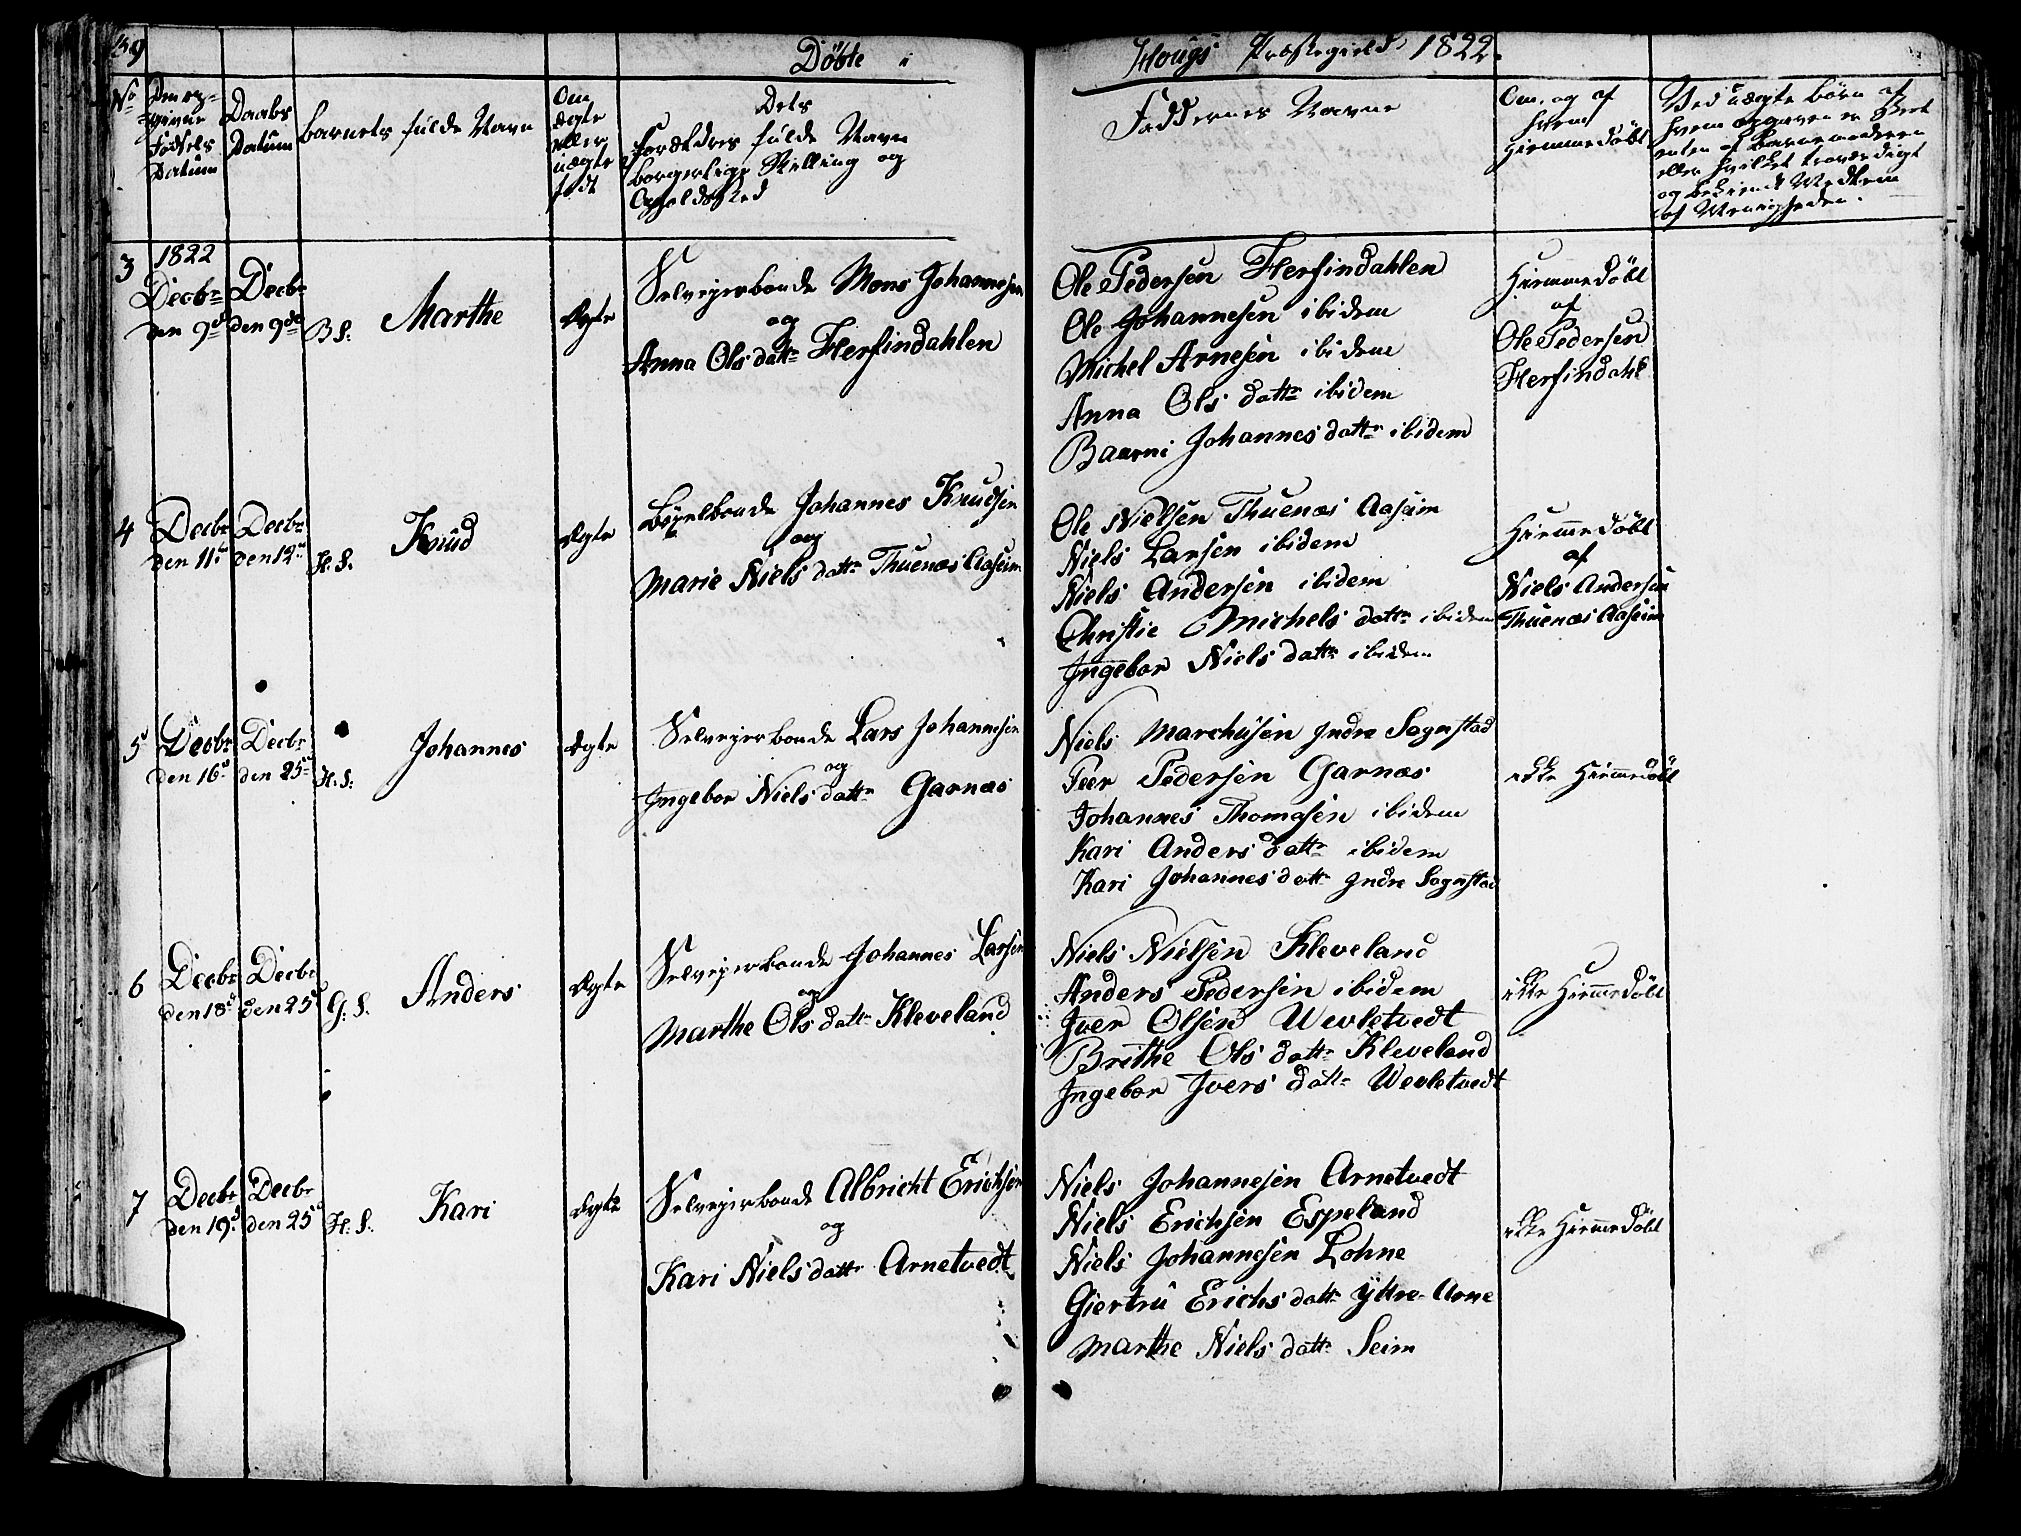 Döbte i Hougs Præstegield 1822.
No
Den op-
givne
Fødsels
Datum
Daabs
Datum
Barnets fulde Navn
Om
ægte
eller
uægte
født
Dets
Forældres fulde Navn
borgerlige Stilling og
Opholdssted
Faddernes Navne
Om, og af
hvem
Hiemmedöbt
Ved uægte børn af
hvem opgaven er skeet
enten af Barnemoderen
eller hvilket troværdigt
og bekiendt Medlem
af Menigheden.
1822
3
Decbr
den 9d
Decbr
den 9de
B S:
Marthe
Ægte
Selveierbonde Mons Johannesen
og
Anna Olsdattr Herfindahlen
Ole Pedersen Herfindahlen
Ole Johannesen ibidem
Michel Arnesen ibidem
Anna Ols dattr ibidem
Baarni Johannesdattr ibidem
Hiemmedöbt
af
Ole Pedersen
Herfindahl
4
Decbr
den 11d
Decbr
den 12d
H. S.
Knud
Ægte
Bøxelbonde Johannes Knudsen
og
Marie Niels dattr Thuenæs Aaseim
Ole Nielsen Thuenæs Aaseim
Niels Larsen ibidem
Niels Andersen ibidem
Christie Michels dattr ibidem
Ingebor Niels dattr ibidem
Hiemmedöbt
af
Niels Andersen
Thuenæs Aaseim
5
Decbr
den 16d
Decbr
den 25d
H. S:
Johannes
Ægte
Selveierbonde Lars Johannesen
og
Ingebor Nielsdattr Garnæs
Niels Marchusen Indre Sognstad
Peer Pedersen Garnæs
Johannes Thomasen ibidem
Kari Anders dattr ibidem
Kari Johannesdattr Indre Sognstad
ikke Hiemmedöbt
6
Decbr
den 18d
Decbr
den 25d
G: S.
Anders
Ægte
Selveierbonde Johannes Larsen
og
Marthe Olsdattr Kleveland
Niels Nielsen Kleveland
Anders Pedersen ibidem
Iver Olsen Wevletvedt
Brithe Ols dattr Kleveland
Ingebor Ivers dattr Wevletvedt
ikke Hiemmedöbt
7
Decbr
den 19d
Decbr
den 25d
H. S:
Kari
Ægte
Selveierbonde Albricht Erichsen
og
Kari Nielsdattr Arnetvedt
Niels Johannesen Arnetvedt
Niels Erichsen Espeland
Niels Johannesen Lohne
Giertru Erichsdattr Yttre-Arne
Marthe Nielsdattr Seim
ikke Hiemmedöbt